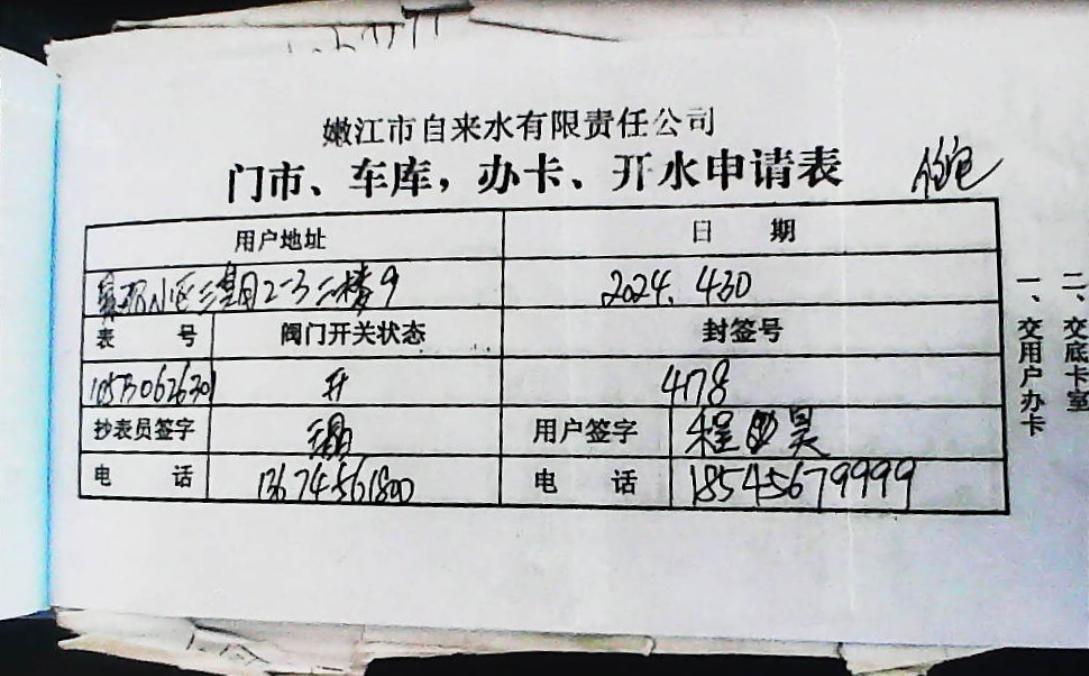 嫩江市自来水有限责任公司
门市、车库，办卡、开水申请表
用户地址 日 期
小区三期2-3二楼9 2024.430
表 号 阀门开关状态 封签号
开 478
抄表员签字 用户签字 程 昊
电 话 13674561800 电 话 18545679999
一、交用户办卡
二、交底卡室